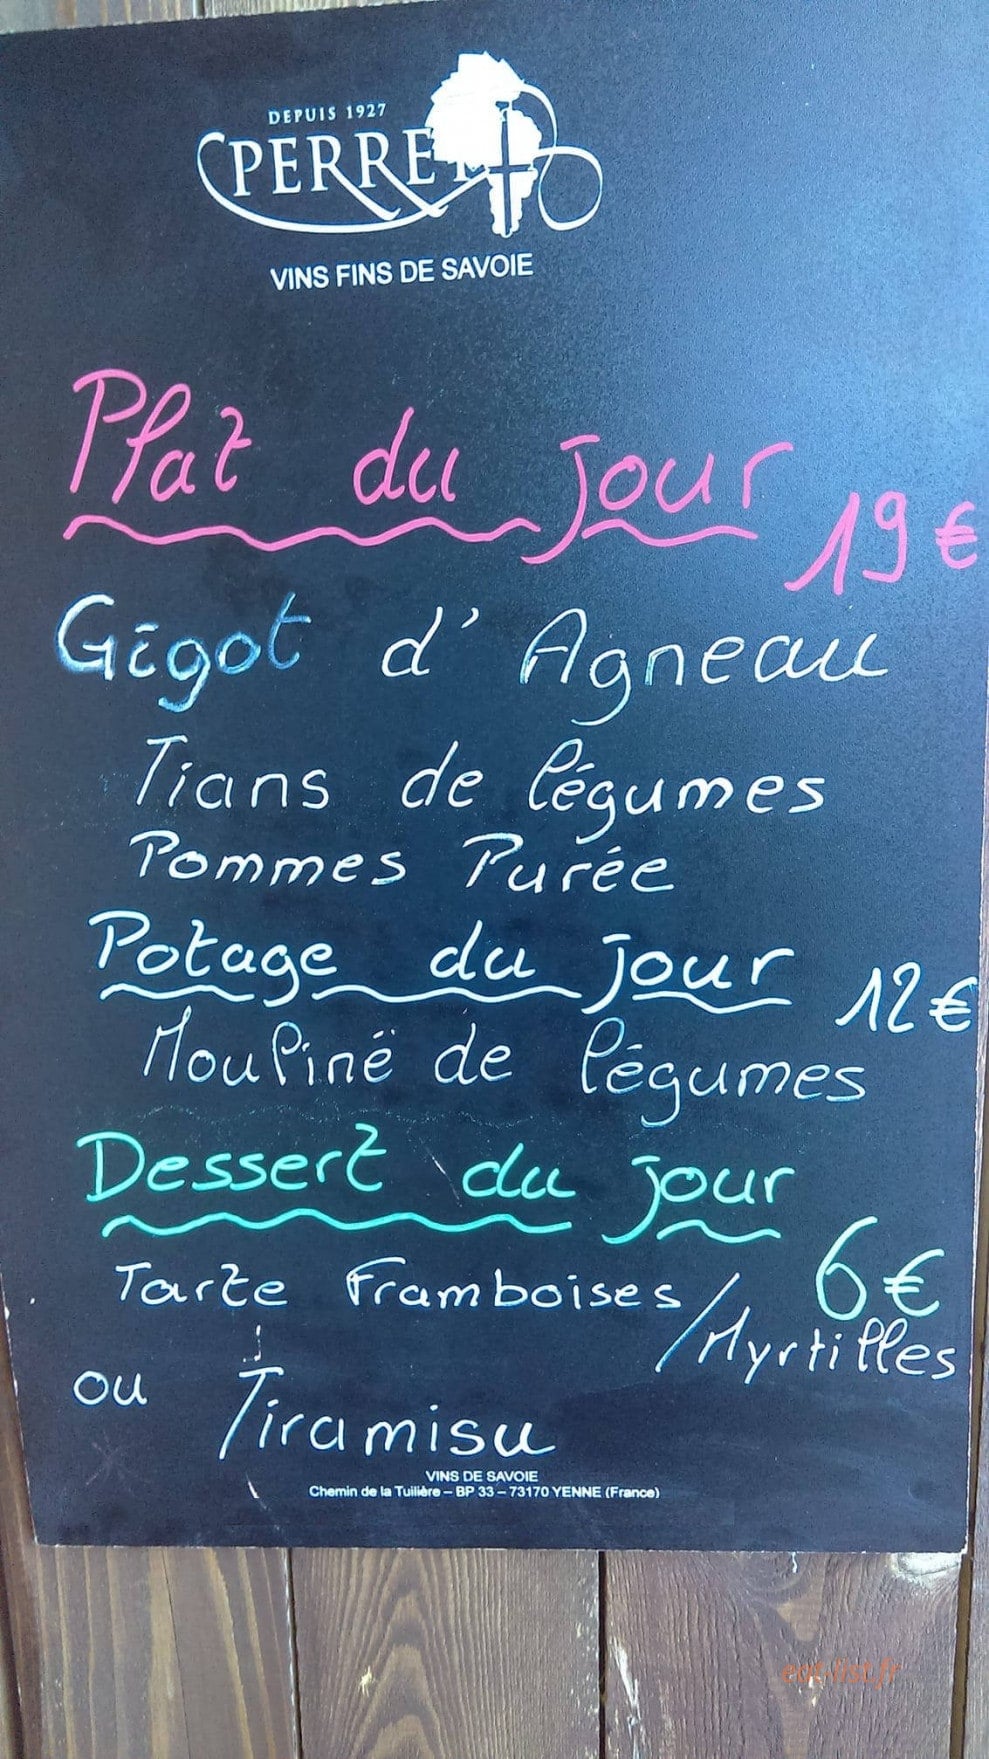 DEPUIS 1927
PERRET
VINS FINS DE SAVOIE
Plat du jour 19€
Gigot d'Agneau
Tians de légumes
Pommes Purée
Potage du jour 12€
Mouliné de légumes
Dessert du jour
6€
Tarte Framboises/
/Myrtilles
ou Tiramisu
VINS DE SAVOIE
Chemin de la Tuilière – BP 33 – 73170 YENNE (France)
eat-list.fr